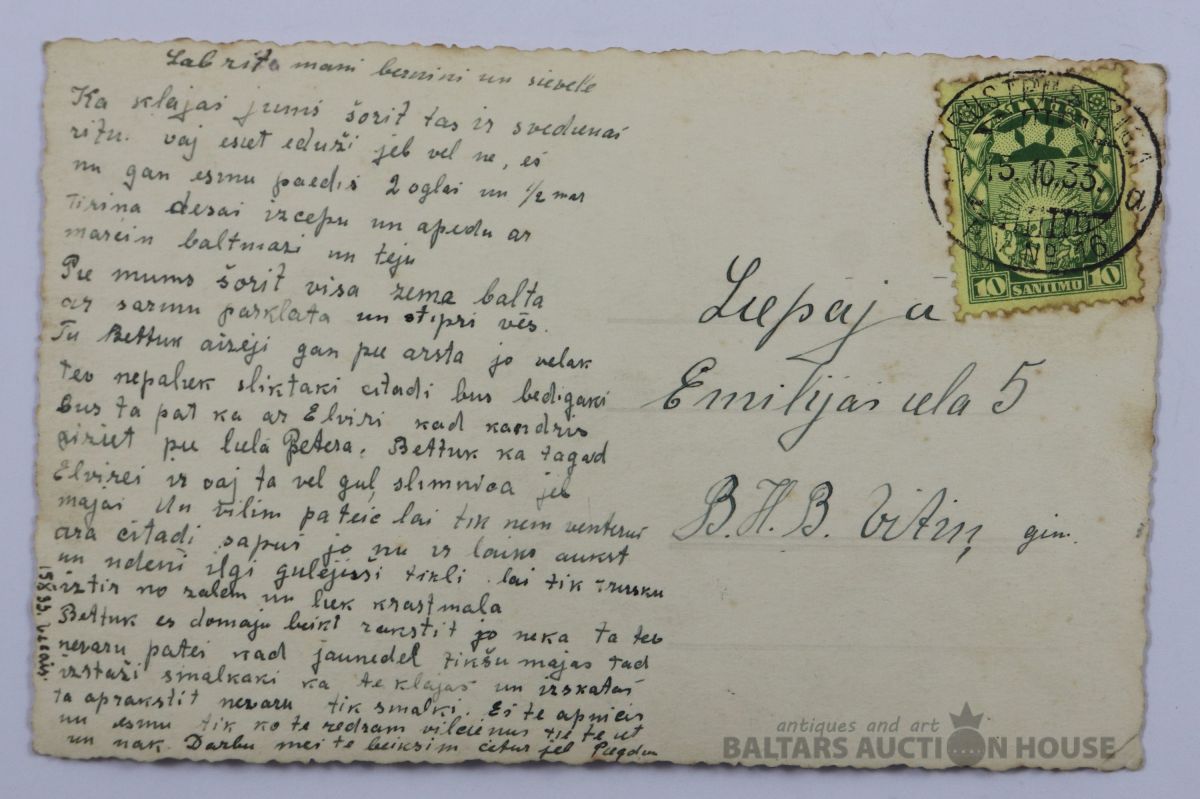 Labrīta mani bernini un sievete
Ka klajas jums šorit tas ir svedienas
ritu. vaj esiet eduži jeb vel ne, es
nu gan esmu paedis 2 oglai un 1/2 mar
tirina desai izcepu un apedu ar
marein baltmazi un teju
Pie mums šorit visa zema balta
ar sarmu parklata un stipri vēs.
Tu Bettuk aizeji gan pie arsta jo velak
tev nepaliek sliktaki citadi bus bedigaki
Bus ta pat ka ar Elviri kad kandris
aiziet pie lula Petera. Bettuk ka tagad
Elvirei ir vaj ta vel guļ slimnica jeb
majai Un vilim pateic lai tik nem venteru
ara citadi sapus jo nu ir laiks auksts
un udeni ilgi gulejuši tirli lai tik
iztir no zalem un liek krastmala
Bettuk es domaju beikt rakstit jo neka ta tev
nevaru patei kad jaunedel tikšu majas tad
izstaži smalkaki ka te klajas un izskatas
ta aprakstit nevaru tik smalki. Es te apnicis
nu esmu tik ko te redzam vilcienus tie te iet
un nak. Darbu mes te beiksim citur jeb
Liepājā
Emilijas iela 5
B. H. B. Vitiņ gim.
LATVIJA
13.10.33.
a
No 16
10 SANTIMU 10
antiques and art
BALTARS AUCTION HOUSE